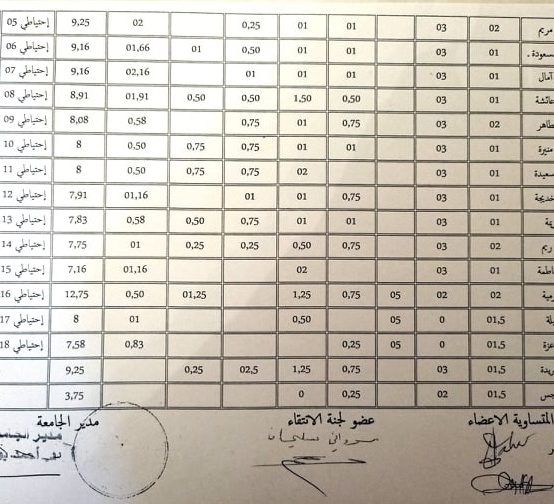 مريم 02 03 01 01 0,25 02 9,25 إحتياطي 05
سعودة. 01 03 01 01 0,50 01 01,66 9,16 إحتياطي 06
آمال 01 03 01 01 02,16 9,16 إحتياطي 07
عائشة 01 03 0,50 1,50 0,50 0,50 01,91 8,91 إحتياطي 08
طاهر 02 03 0,75 01 0,75 0,58 8,08 إحتياطي 09
منيرة 01 03 01 01 0,75 0,75 0,50 8 إحتياطي 10
سعيدة 01 03 02 0,75 0,75 0,50 8 إحتياطي 11
خديجة 01 03 0,75 01 01 01,16 7,91 إحتياطي 12
01 03 01 01 0,75 0,50 0,58 7,83 إحتياطي 13
ريم 02 03 0,75 0,50 0,25 0,25 01 7,75 إحتياطي 14
اطمة 01 03 02 01,16 7,16 إحتياطي 15
مية 02 02 05 0,75 1,25 01,25 0,50 12,75 إحتياطي 16
لة 01,5 0 05 0,50 01 8 إحتياطي 17
عزة 01,5 0 05 0,25 0,83 7,58 إحتياطي 18
ريدة 01,5 03 0,75 1,25 02,5 0,25 9,25
جس 01,5 02 0,25 0 3,75
المتساوية الاعضاء عضو لجنة الانتقاء مدير الجامعة
مدير الجامع